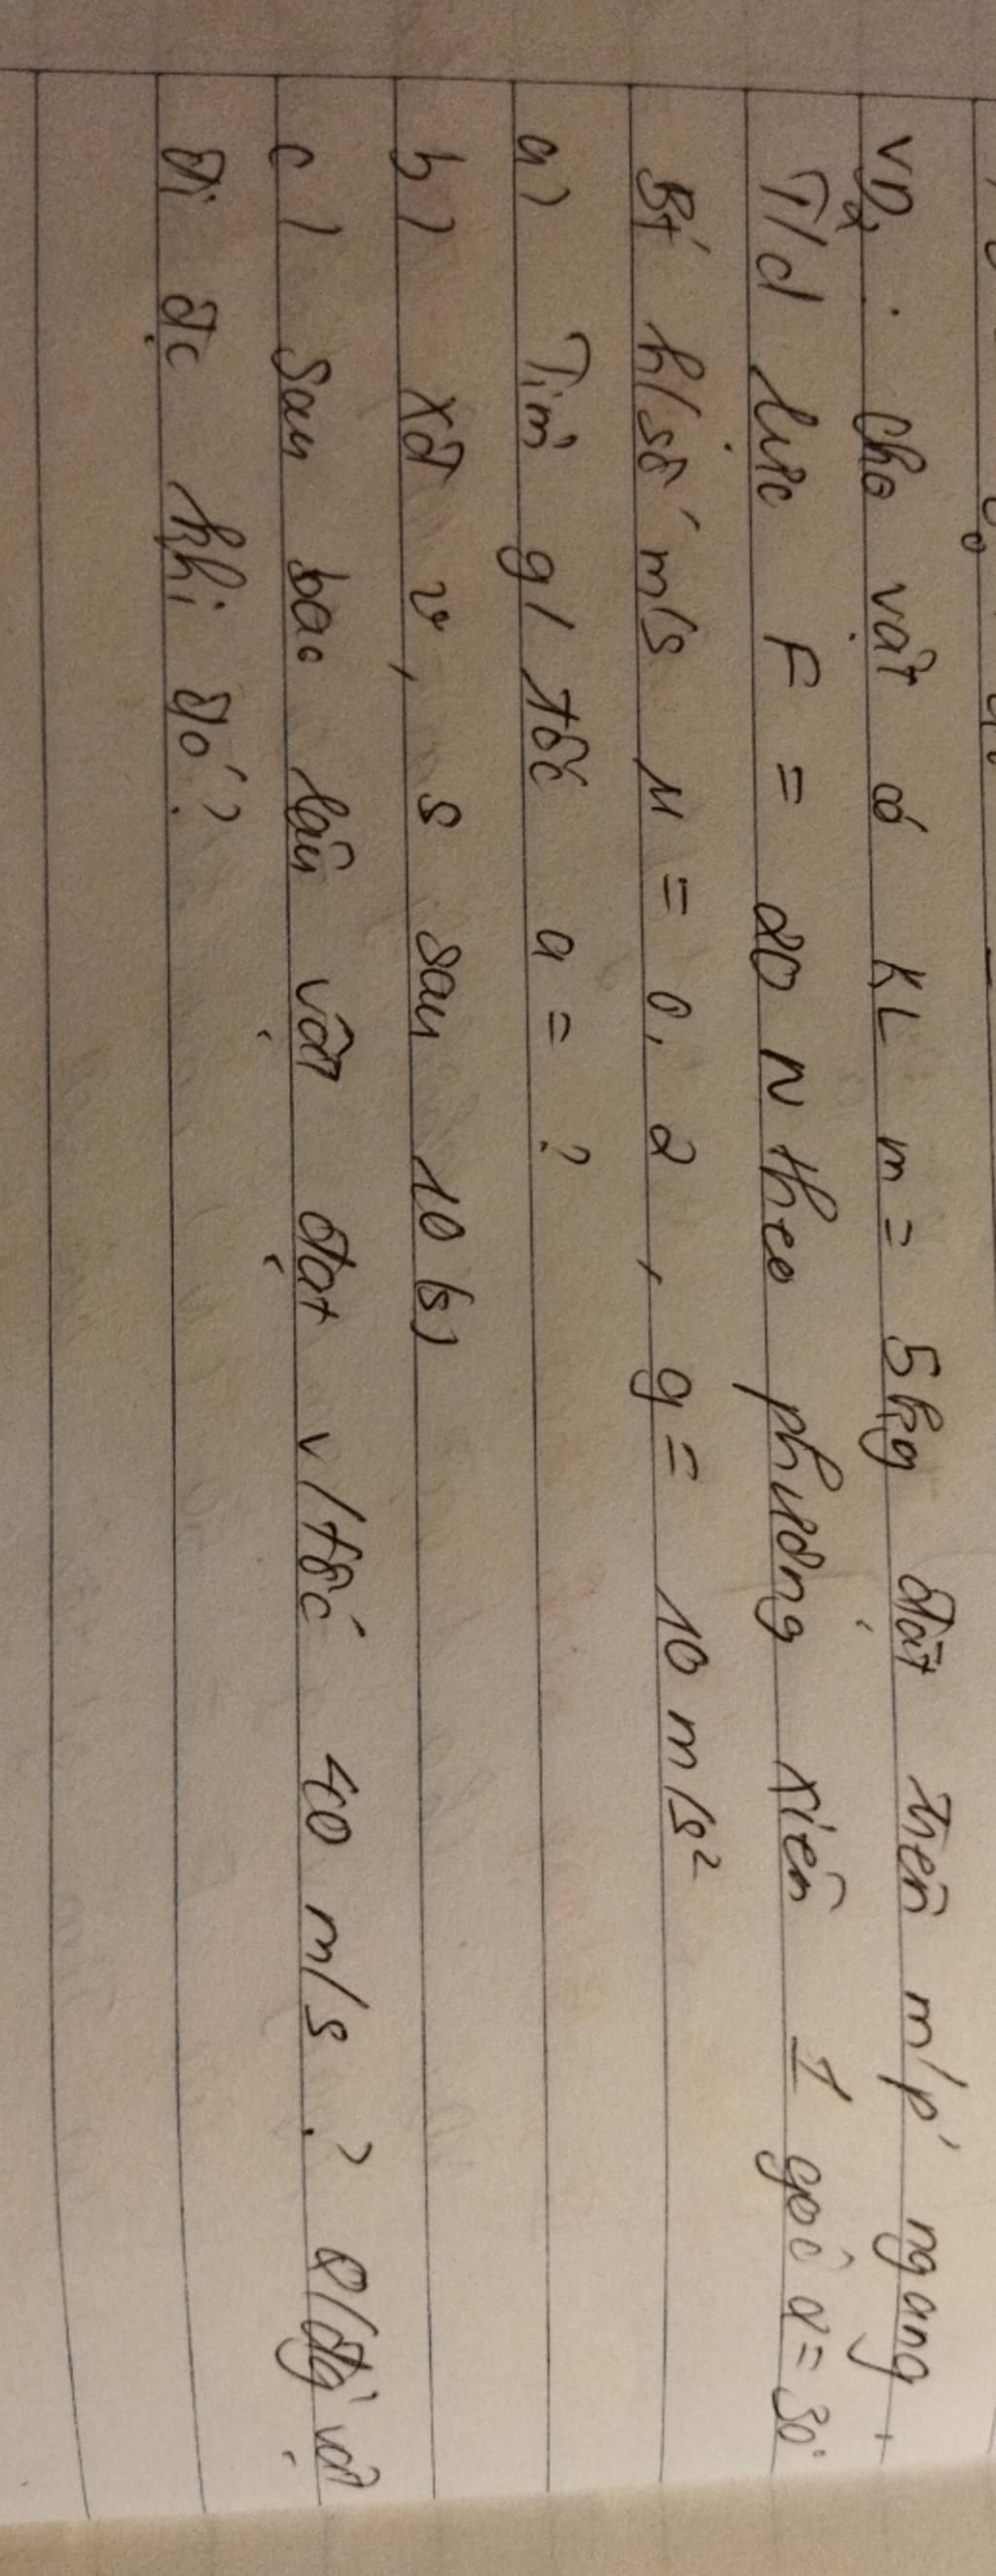 VD₂. Cho vật có KL m = 5kg đặt trên m/p' ngang.
T/d lực F = 20 N theo phương xiên 1 góc α = 30°
Bt' h/số m/s μ = 0,2, g = 10 m/s²
a) Tìm g/tốc a = ?
b) XĐ v, s sau 10 (s)
c) Sau bao lâu vật đạt v/tốc 40 m/s.? Q/đg' vật
đi đc khi đó?